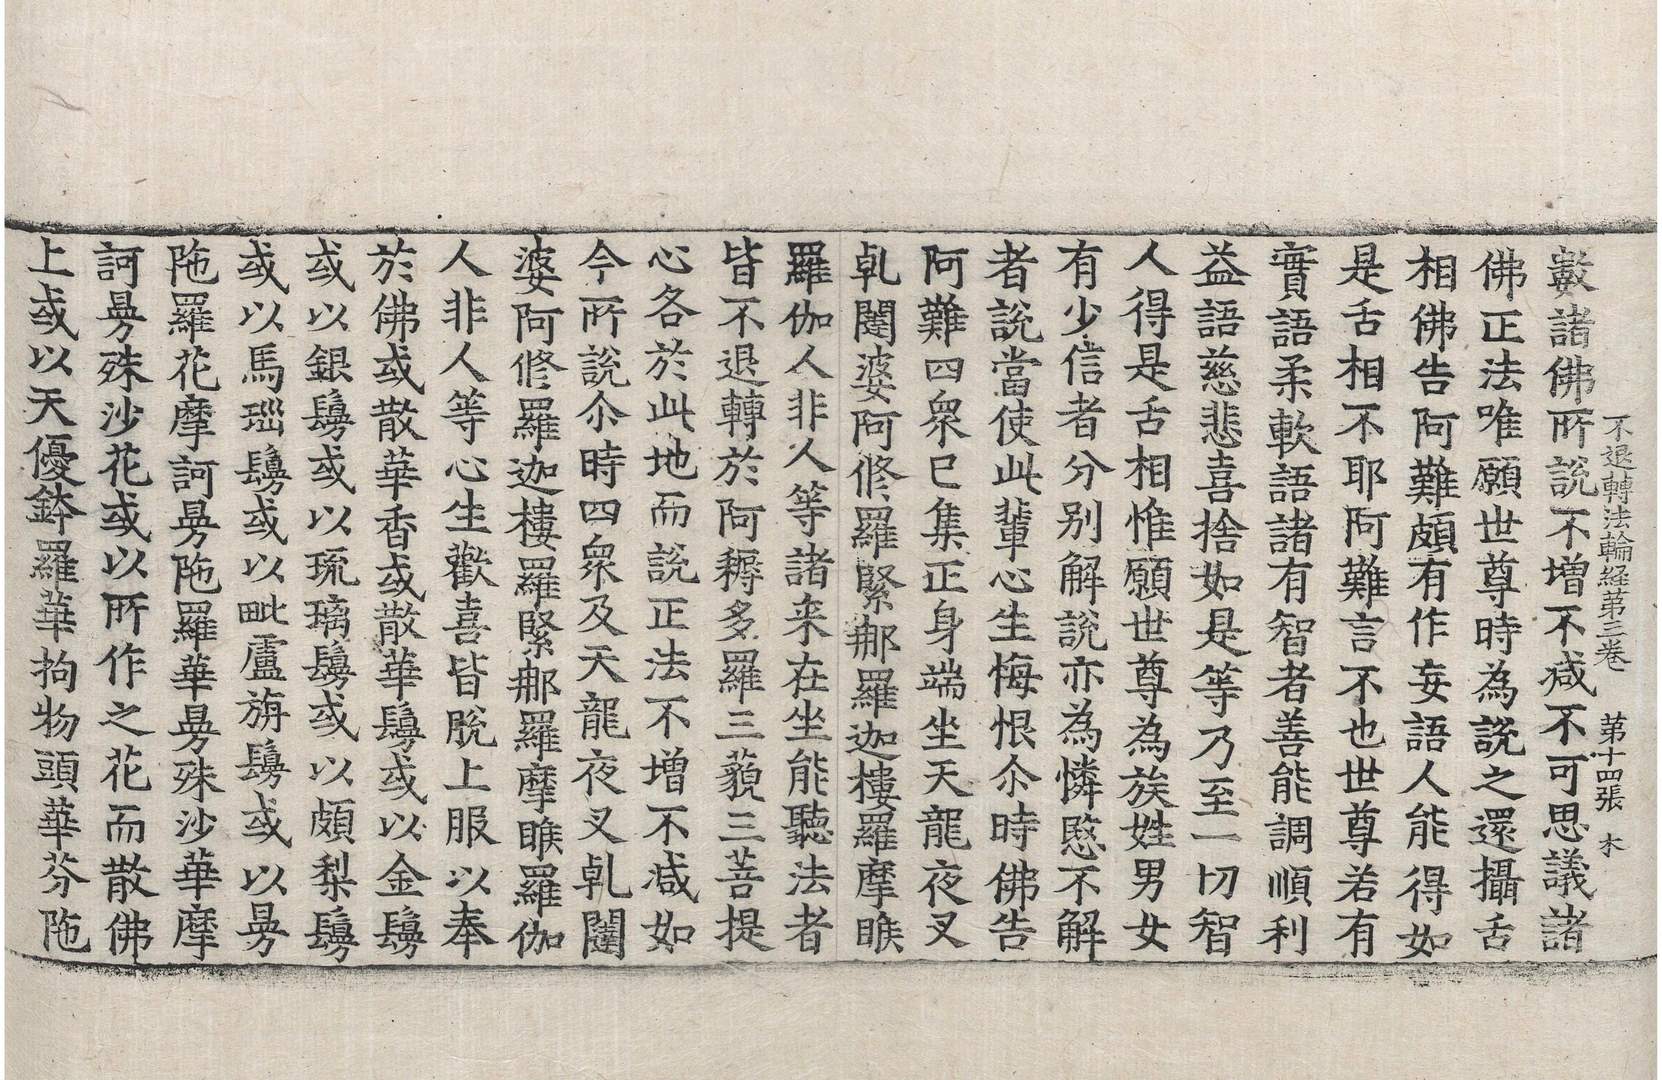 不退轉法輪經第三卷　第十四張　木
數諸佛所說不增不減不可思議諸
佛正法唯願世尊時為說之還攝舌
相佛告阿難頗有作妄語人能得如
是舌相不耶阿難言不也世尊若有
實語柔軟語諸有智者善能調順利
益語慈悲喜捨如是等乃至一切智
人得是舌相惟願世尊為族姓男女
有少信者分別解說亦為憐愍不解
者說當使此輩心生悔恨尒時佛告
阿難四衆已集正身端坐天龍夜叉
乹闥婆阿修羅緊那羅迦樓羅摩睺
羅伽人非人等諸来在坐能聽法者
皆不退轉於阿耨多羅三藐三菩提
心各於此地而說正法不增不減如
今所說尒時四衆及天龍夜叉乹闥
婆阿修羅迦樓羅緊那羅摩睺羅伽
人非人等心生歡喜皆脫上服以奉
於佛或散華香或散華鬘或以金鬘
或以銀鬘或以琉璃鬘或以頗梨鬘
或以馬瑙鬘或以毗盧旃鬘或以曼
陁羅花摩訶曼陁羅華曼殊沙華摩
訶曼殊沙花或以所作之花而散佛
上或以天優鉢羅華拘物頭華芬陁